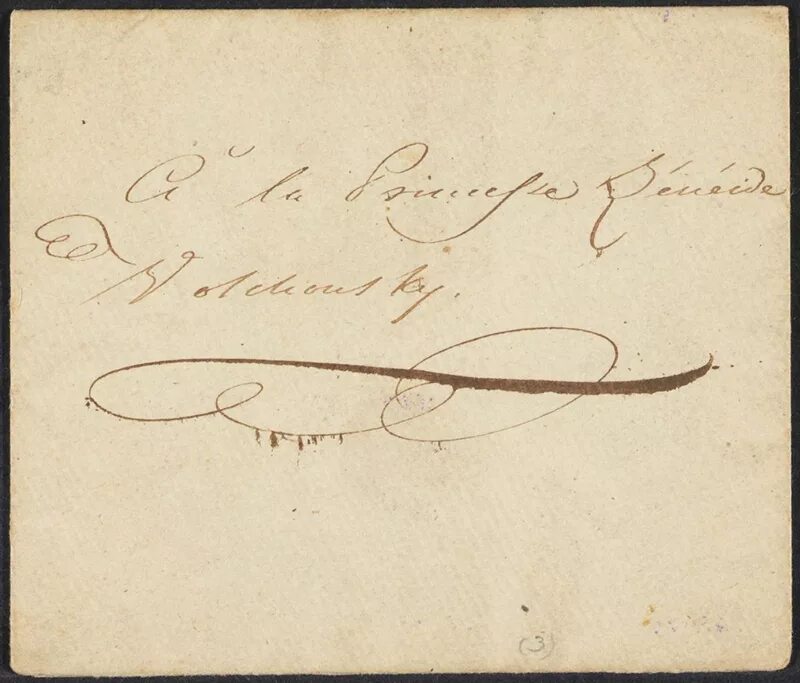 À la Princesse Zénéide
Volchonsky.
(3)